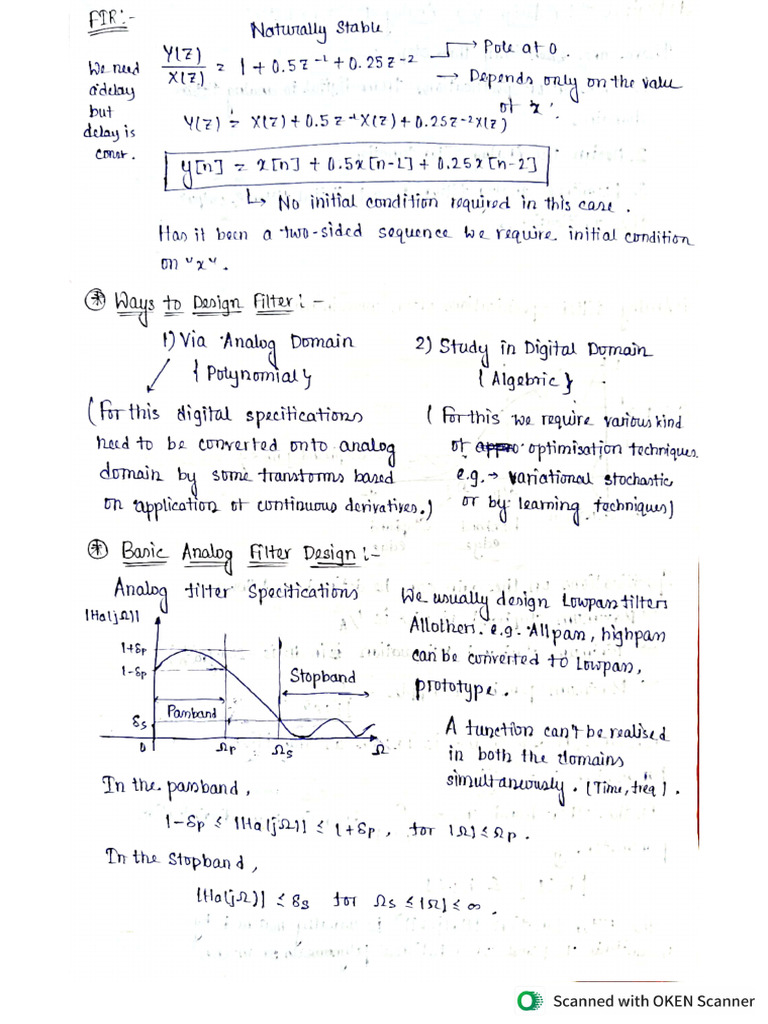 FIR:-
Naturally Stable.
We need a delay but delay is const.
Y(z)/X(z) = 1 + 0.5z⁻¹ + 0.25z⁻² → Pole at 0.
→ Depends only on the value of x.
Y(z) = X(z) + 0.5z⁻¹X(z) + 0.25z⁻²X(z)
y[n] = x[n] + 0.5x[n-1] + 0.25x[n-2]
↳ No initial condition required in this case.
Has it been a two-sided sequence we require initial condition
on "x".
⊛ Ways to Design Filter:-
1) Via Analog Domain
{Polynomial}
(For this digital specifications
need to be converted onto analog
domain by some transforms based
on application of continuous derivatives.)
2) Study in Digital Domain
{Algebric}
(For this we require various kind
of appro optimisation techniques.
e.g. → variational stochastic
or by learning techniques)
⊛ Basic Analog Filter Design:-
Analog filter Specifications
|Ha(jΩ)|
1+εp
1-εp
εs
0
Passband
Stopband
Ωp
Ωs
Ω
We usually design Lowpass filters
Allothers. e.g. Allpass, highpass
can be converted to Lowpass,
prototype.
A function can't be realised
in both the domains
simultaneously. (Time, freq).
In the passband,
1-εp ≤ |Ha(jΩ)| ≤ 1+εp, for |Ω| ≤ Ωp.
In the Stopband,
|Ha(jΩ)| ≤ εs for Ωs ≤ |Ω| ≤ ∞.
Scanned with OKEN Scanner